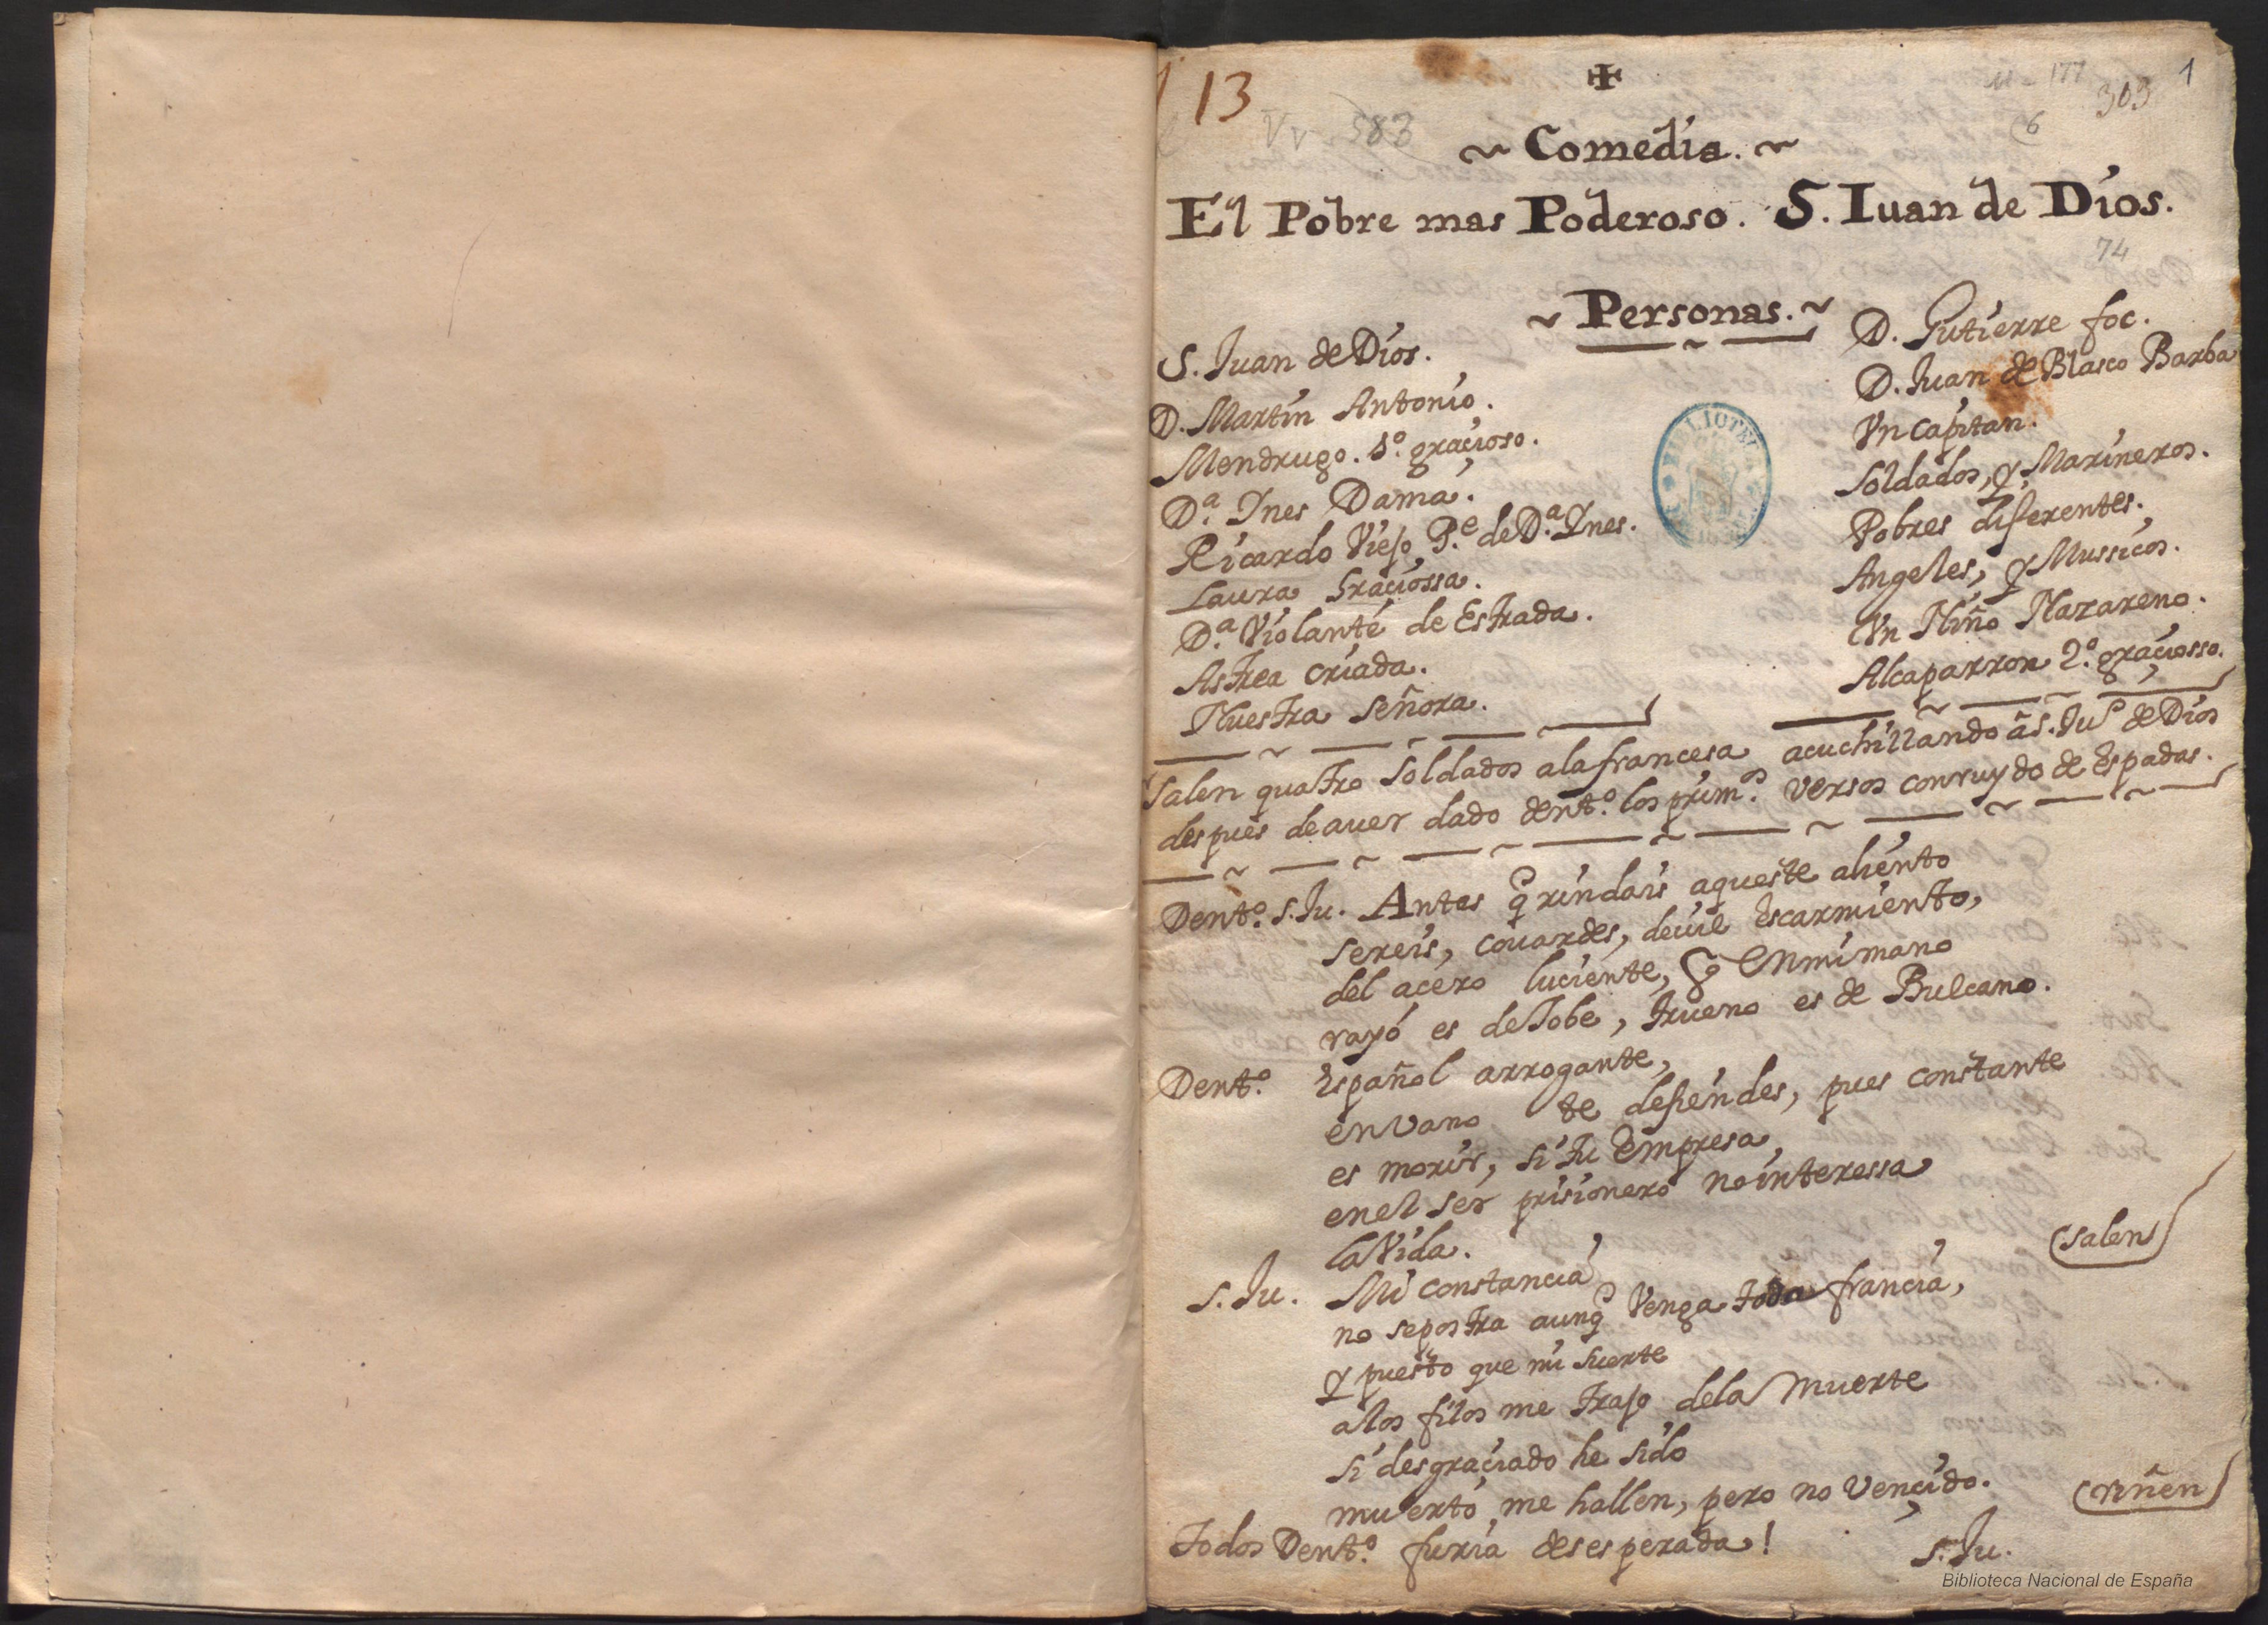 13
Vv 583
303
1
6
✠
~ Comedia. ~
El Pobre mas Poderoso. S. Iuan de Dios.
74
~ Personas. ~
S. Juan de Dios.
D. Martin Antonio.
Mendrugo. 1º. graçioso.
Dª. Ines Dama.
Ricardo Viejo P.e de Dª. Ynes.
Laura Graçiossa.
Dª. Violante de Estrada.
Astrea criada.
Nuestra Señora.
D. Gutierre foc.
D. Juan de Blasco Barba
Vn Capitan.
Soldados, y Marineros.
Pobres diferentes.
Angeles, y Mussicos.
Vn Niño Nazareno.
Alcaparron 2º. graçiosso.
Salen quatro Soldados alafrancesa acuchillando âS. Juº de Dios
despues deauer dado dentº. los primos. versos conruydo de Espadas.
Dentº. S. Ju. Antes q̃ rindais aqueste aliento
sereis, couardes, deuil escarmiento,
del acero luciente, q̃ enmimano
rayo es deJobe, trueno es de Bulcano.
Dentº. Español arrogante,
envano te defiendes, pues constante
es morir, si tu empresa,
enel ser prisionero nointeressa
laVida.
S. Ju. Mi constancia
no sepostra aunq̃ Venga toda francia,
(salen)
y puesto que mi suerte
alos filos me trajo dela muerte
si desgraçiado he sido
muerto me hallen, pero no vençido.
(riñen)
Todos Dentº. furia desesperada!
S. Ju.
Biblioteca Nacional de España